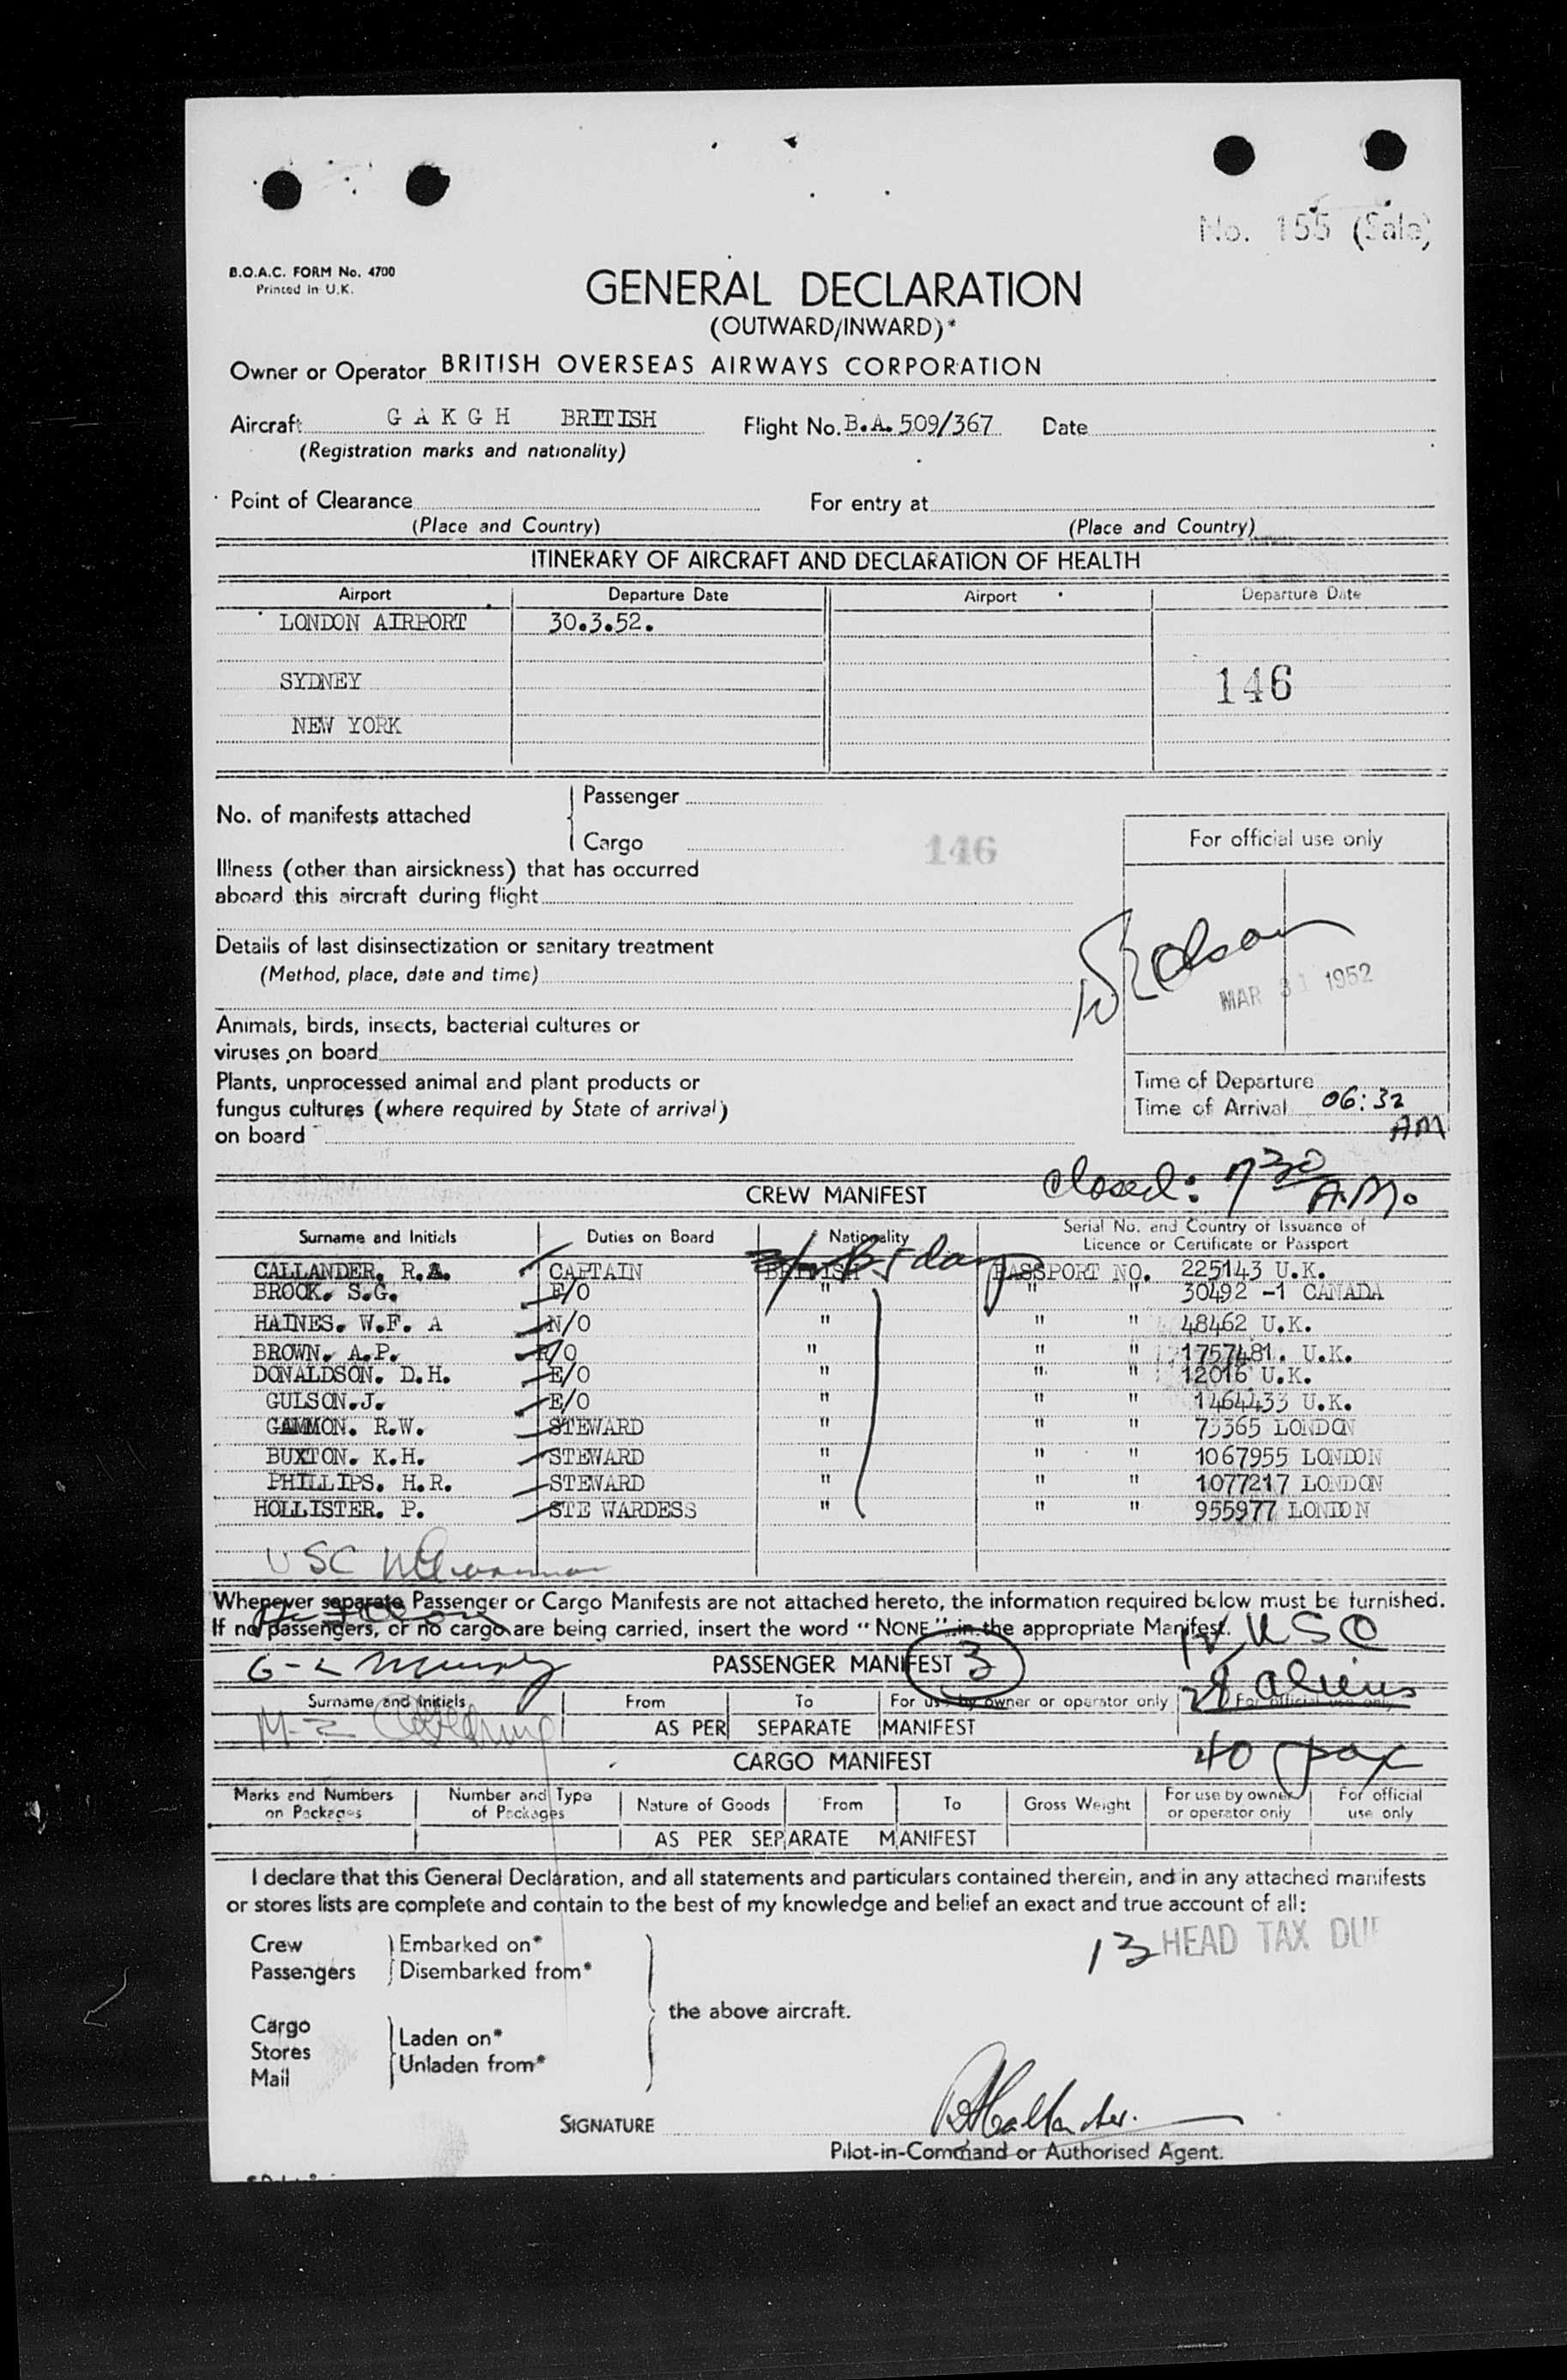 No. 155 (Sale)
B.O.A.C. FORM No. 4700
Printed in U.K.
GENERAL DECLARATION
(OUTWARD/INWARD)*
Owner or Operator BRITISH OVERSEAS AIRWAYS CORPORATION
Aircraft G A K G H BRITISH Flight No. B.A. 509/367 Date
(Registration marks and nationality)
Point of Clearance For entry at
(Place and Country) (Place and Country)
ITINERARY OF AIRCRAFT AND DECLARATION OF HEALTH
Airport Departure Date Airport Departure Date
LONDON AIRPORT 30.3.52.
SYDNEY 146
NEW YORK
No. of manifests attached
Passenger
Cargo
146
For official use only
Illness (other than airsickness) that has occurred
aboard this aircraft during flight
Details of last disinsectization or sanitary treatment
(Method, place, date and time)
MAR 31 1952
Animals, birds, insects, bacterial cultures or
viruses on board
Plants, unprocessed animal and plant products or
fungus cultures (where required by State of arrival)
on board
Time of Departure
Time of Arrival 06:32
AM
closed: 7 30 A.M.
CREW MANIFEST
Surname and Initials Duties on Board Nationality Serial No. and Country of Issuance of
Licence or Certificate or Passport
CALLANDER. R.A. CAPTAIN BRITISH PASSPORT NO. 225143 U.K.
BROCK. S.G. F/O " " " 30492 -1 CANADA
HAINES. W.F. A N/O " " " 48462 U.K.
BROWN. A.P. R/O " " " 1757481. U.K.
DONALDSON. D.H. E/O " " " 12016 U.K.
GULSON.J. E/O " " " 1464433 U.K.
GAMMON. R.W. STEWARD " " " 73365 LONDON
BUXTON. K.H. STEWARD " " " 1067955 LONDON
PHILLIPS. H.R. STEWARD " " " 1077217 LONDON
HOLLISTER. P. STE WARDESS " " " 955977 LONDON
USC
Whenever separate Passenger or Cargo Manifests are not attached hereto, the information required below must be furnished.
If no passengers, or no cargo are being carried, insert the word "NONE" in the appropriate Manifest.
12 USC
PASSENGER MANIFEST 3
28 aliens
Surname and Initials From To For use by owner or operator only For official use only
AS PER SEPARATE MANIFEST
CARGO MANIFEST
40 pax
Marks and Numbers on Packages Number and Type of Packages Nature of Goods From To Gross Weight For use by owner or operator only For official use only
AS PER SEPARATE MANIFEST
I declare that this General Declaration, and all statements and particulars contained therein, and in any attached manifests
or stores lists are complete and contain to the best of my knowledge and belief an exact and true account of all:
13 HEAD TAX DUE
Crew Embarked on*
Passengers Disembarked from*
the above aircraft.
Cargo
Stores
Mail
Laden on*
Unladen from*
SIGNATURE RACallander.
Pilot-in-Command or Authorised Agent.